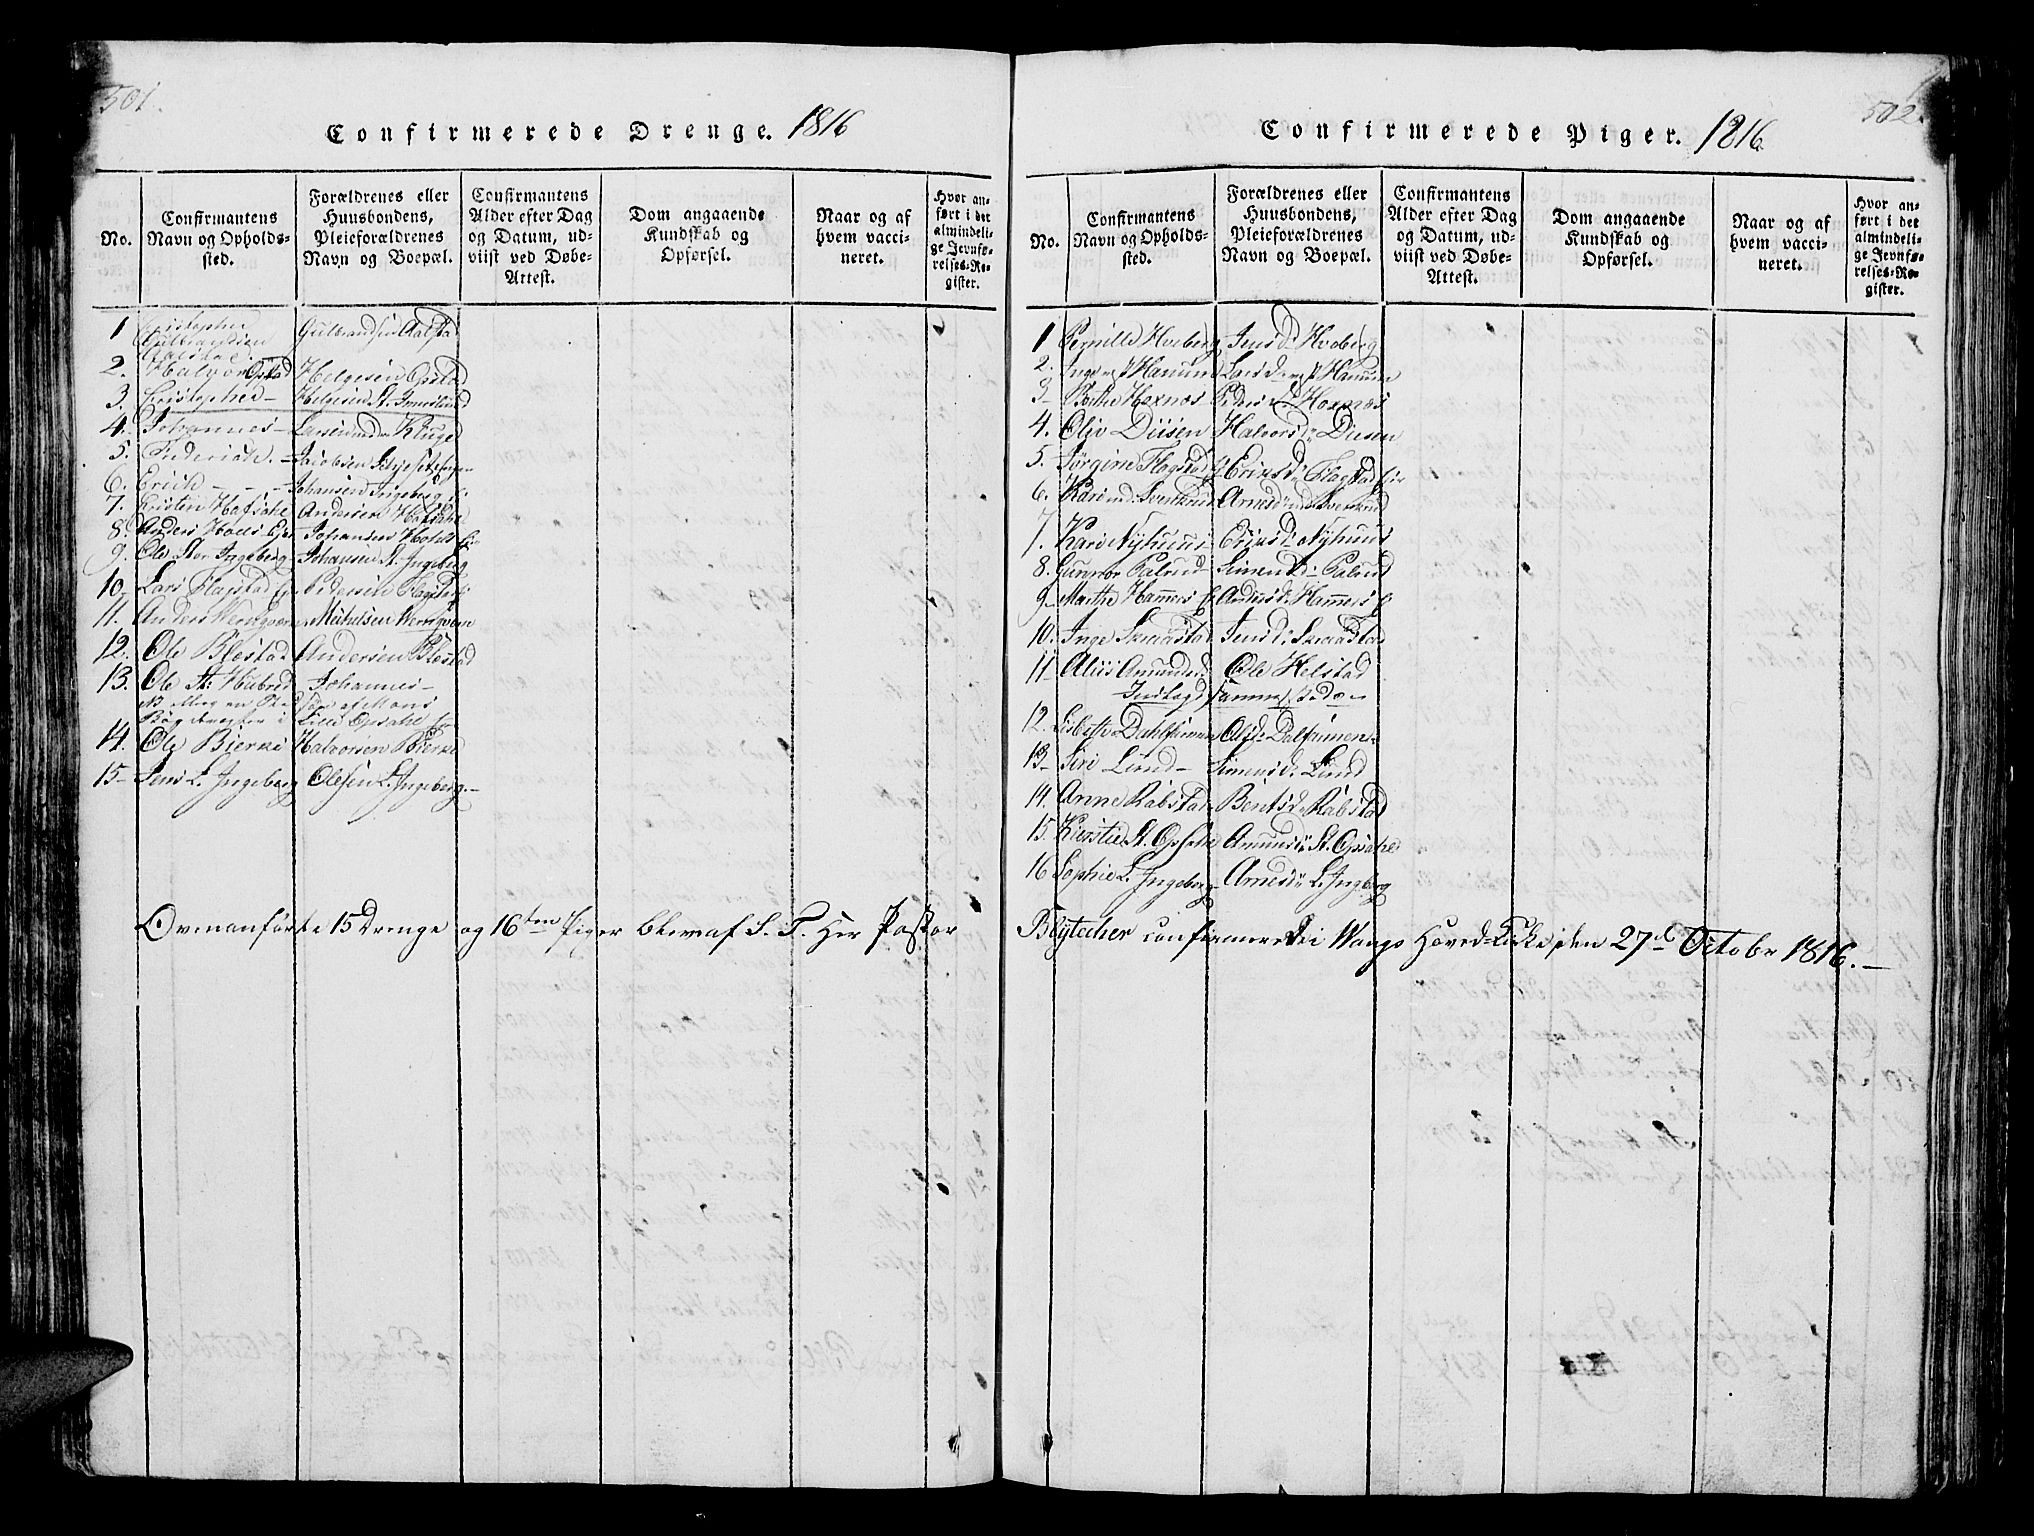 501.
Confirmerede Drenge. 1816
No.
Confirmantens Navn og Opholds-sted.
Forældrenes eller Huusbondens, Pleieforældrenes Navn og Boepæl.
Confirmantens Alder efter Dag og Datum, ud-viist ved Døbe-Attest.
Dom angaaende Kundskab og Opførsel.
Naar og af hvem vacci-neret.
Hvor an-ført i det almindeli-ge Jevnfø-relses-Re-gister.
1 Christopher Gulbrandsen Aalstad Gulbrandsen Aalstad
2. Halvor Opstad Helgesen Opstad
3. Christopher - Helgesen St.
4. Johannes - Larsen Kluge
5. Frederich. - Jacobsen
6. Erich - - - Johansen Ingeberg
7. Kristen Hofsahl Andersen Hofsahl
8. Anders Johansen
9. Ole Stor Ingeberg - Johansen St. Ingeberg
10- Lars Flagstad Pedersen Flagstad
11. Anders Michelsen
12. Ole Blestad Andersen Blestad
13. Ole St: Hubred Johannes -
af Mons
Lille Opsahl
14. Ole Bierke Halvorsen Bierke
15- Jens L. Ingeberg Olesen L. Ingeberg. -
Ovenanførte 15 Drenge og 16ten Piger blev af S. T. Her Pastor
502.
Confirmerede Piger. 1816
No.
Confirmantens Navn og Opholds-sted.
Forældrenes eller Huusbondens, Pleieforældrenes Navn og Boepæl.
Confirmantens Alder efter Dag og Datum, ud-viist ved Døbe-Attest.
Dom angaaende Kundskab og Opførsel.
Naar og af hvem vacci-neret.
Hvor an-ført i det almindeli-ge Jevnfø-relses-Re-gister.
1 Pernille Hveberg Jensd. Hveberg
2. Larsd.
3- Berthe Hexnes Pedersd. Hoxnes
4. Oliv Diisen Halvorsd: Diesen
5. Jørgine Flagstad Ericsd: Flagstad
6. Kari Arnesd:
7. Kari Nyhuus - Ericsd: Nyhuus
8. Gunnor Palrud - Simensd: Palrud
9- Marthe Hammers Andersd: Hammers
10. Inge Smaastad Jensd: Smaastad
11- Aliis Amundsd: Ole Helstad
12. Lisbeth Dahlsimen Olsd: Dalsimen
13- Siri Lund - Simensd: Lund
14. Anne Rabstad - Bentsd: Rabstad
15. Kirstie St. Opsahl Amundsd: St. Opsahl
16 Sophie L. Ingeberg - Arnesd: L. Ingeberg
Blytecher confirmeret i Wangs Hoved-Kirke, den 27d October 1816. -